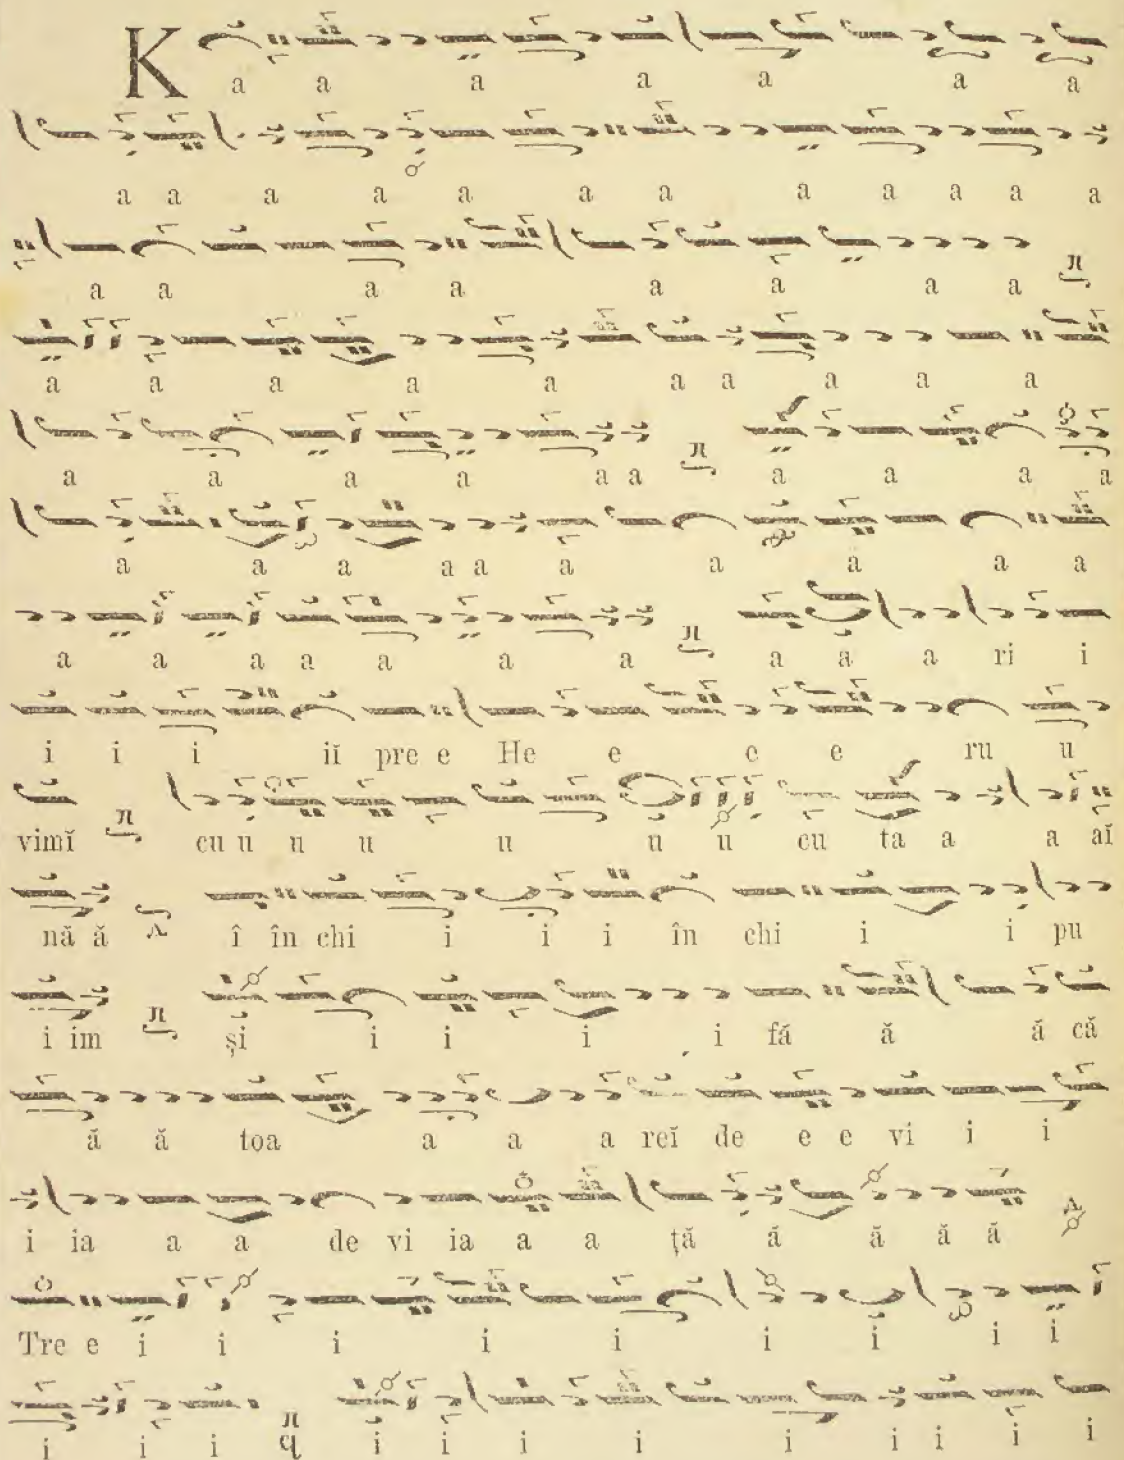 K a a a a a a a
a a a a a a a a a a a a
a a a a a a a a
a a a a a a a a a a
a a a a a a a a a a
a a a a a a a a a a
a a a a a a a a ă a ri i
i i i iĭ pre e He e e e ru u
vimĭ cu u u u u ŭ u cu ta a a aĭ
nă ă î în chi i i i în chi i i pu
i im și i i i i fă ă ă că
ă ă toa a a a reĭ de e e vi i i
i ia a a de vi ia a a ță ă ă ă ă
Tre e i i i i i i ĭ i i
i i i i i i i i i i i i